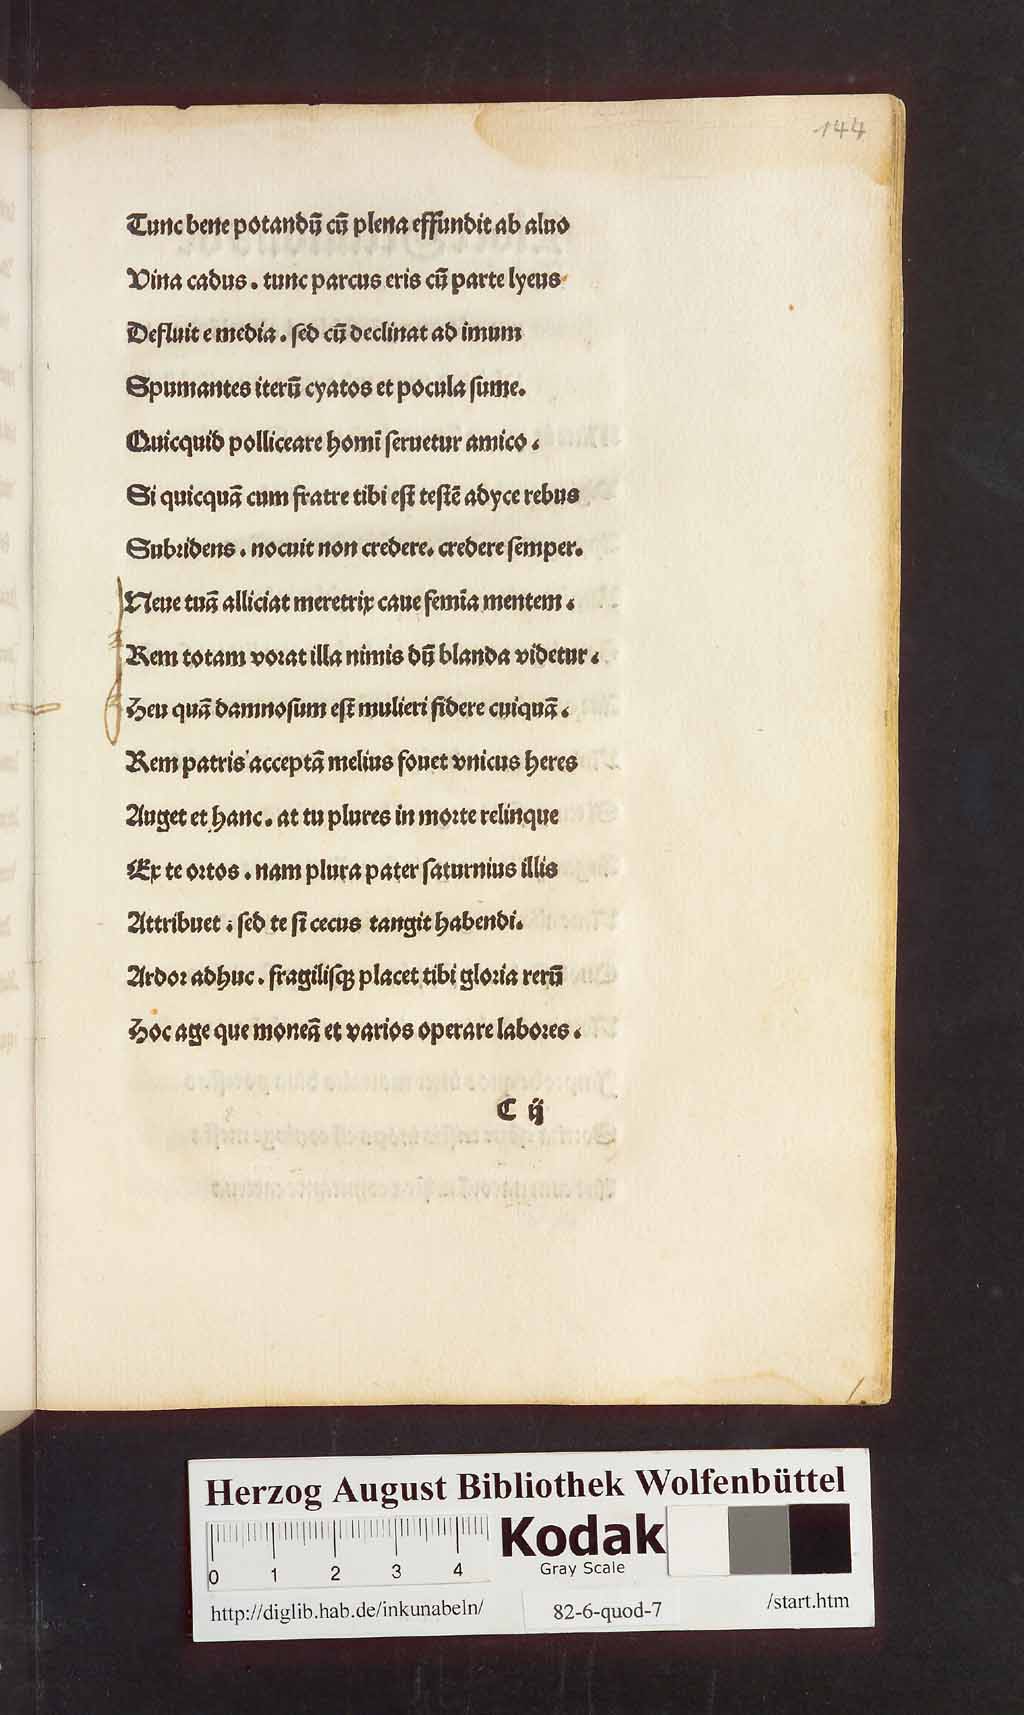 144
Tunc bene potandū cū plena effundit ab aluo
Vina cadus . tunc parcus eris cū parte lyeus
Defluit e media . ſed cū declinat ad imum
Spumantes iterū cyatos et pocula ſume.
Quicquid polliceare homī ſeruetur amico .
Si quicquā cum fratre tibi eſt̄ teſtē adyce rebus
Subꝛidens . nocuit non credere. credere ſemper.
Neue tuā alliciat meretrix caue femīa mentem .
Rem totam voꝛat illa nimis dū blanda videtur .
Heu quā damnoſum eſt̄ mulieri fidere cuiquā .
Rem patris acceptā melius fouet vnicus heres
Auget et hanc . at tu plures in moꝛte relinque
Ex te oꝛtos . nam plura pater ſaturnius illis
Attribuet . ſed te ſi cecus tangit habendi.
Ardoꝛ adhuc . fragiliſqꝫ placet tibi gloꝛia rerū
Hoc age que moneā et varios operare laboꝛes .
C ij
Herzog August Bibliothek Wolfenbüttel
0 1 2 3 4
Kodak
Gray Scale
http://diglib.hab.de/inkunabeln/ 82-6-quod-7 /start.htm